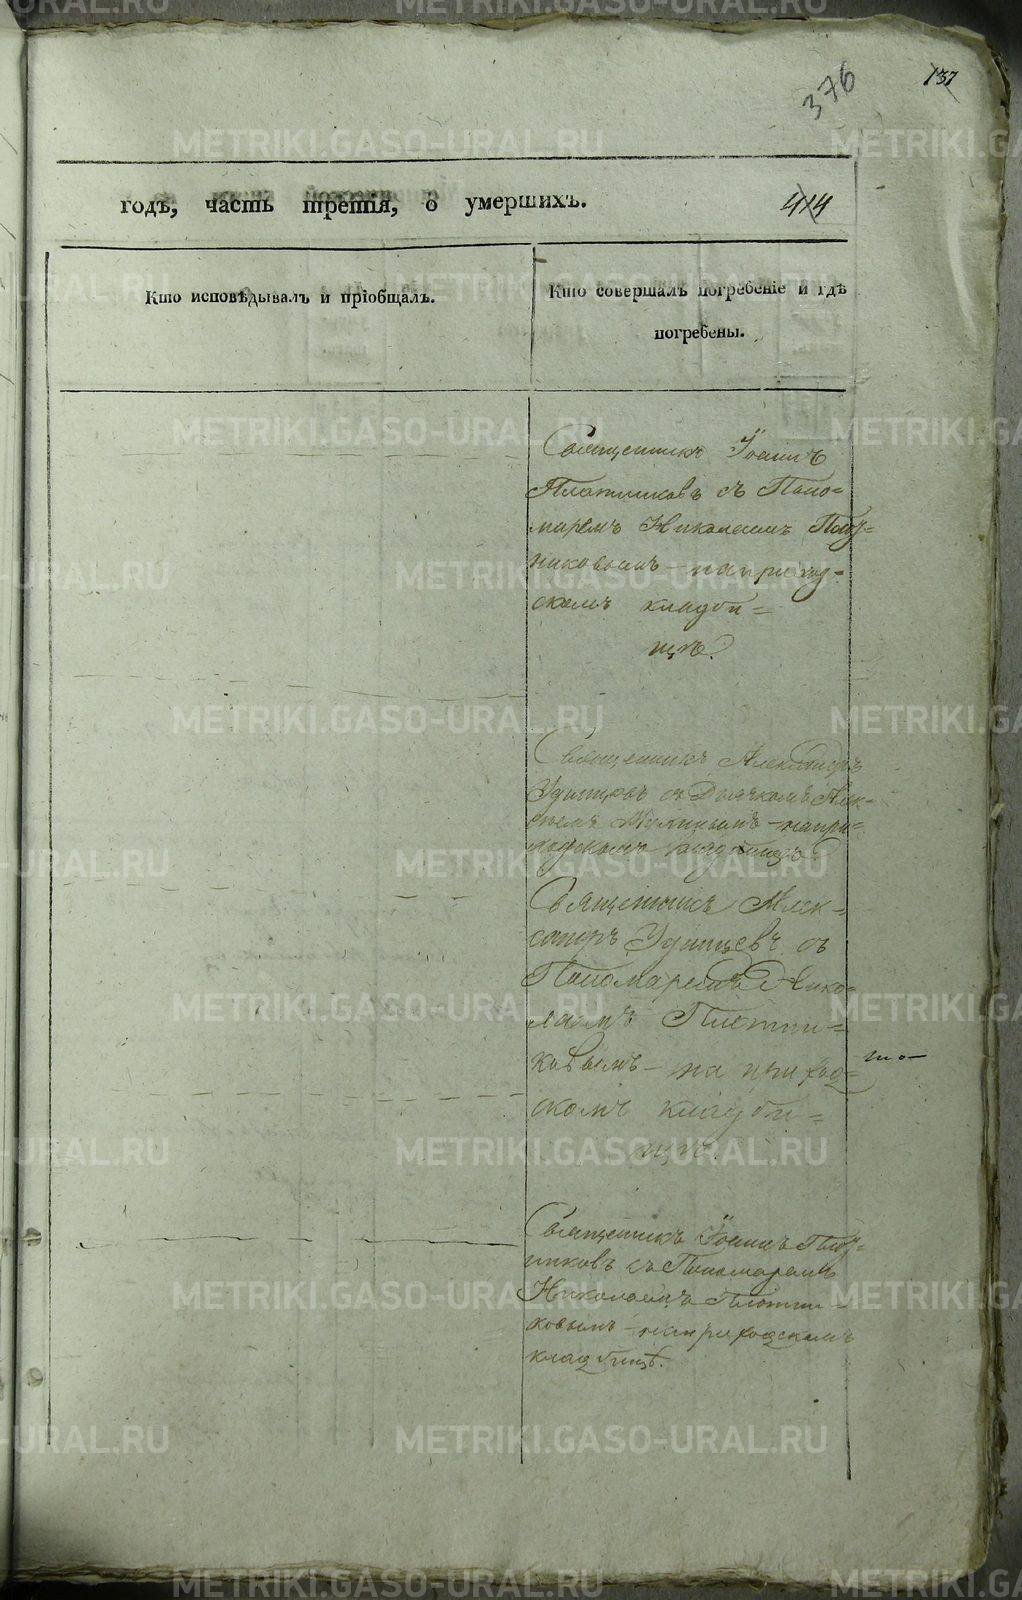 137
376
годъ, часть третія, о умершихъ.
414
Кто исповѣдывалъ и пріобщалъ.
Кто совершалъ погребеніе и гдѣ
погребены.
Священникъ Іоаннъ
Плотниковъ съ Поно=
маремъ Николаемъ Плот=
никовымъ – на приход=
скомъ кладби=
щѣ.
Священникъ Александръ
Удинцовъ съ Дьячкомъ Алек=
– на при=
ходскомъ кладбищѣ
Священникъ Алек=
сандръ Удинцевъ съ
Пономаремъ Нико=
лаемъ Плотни=
ковымъ – на приход=
скомъ кладби=
щѣ.
Священникъ Іоаннъ Плот=
никовъ съ Пономаремъ
Николаемъ Плотни=
ковымъ – на приходскомъ
кладбищѣ.
METRIKI.GASO-URAL.RU